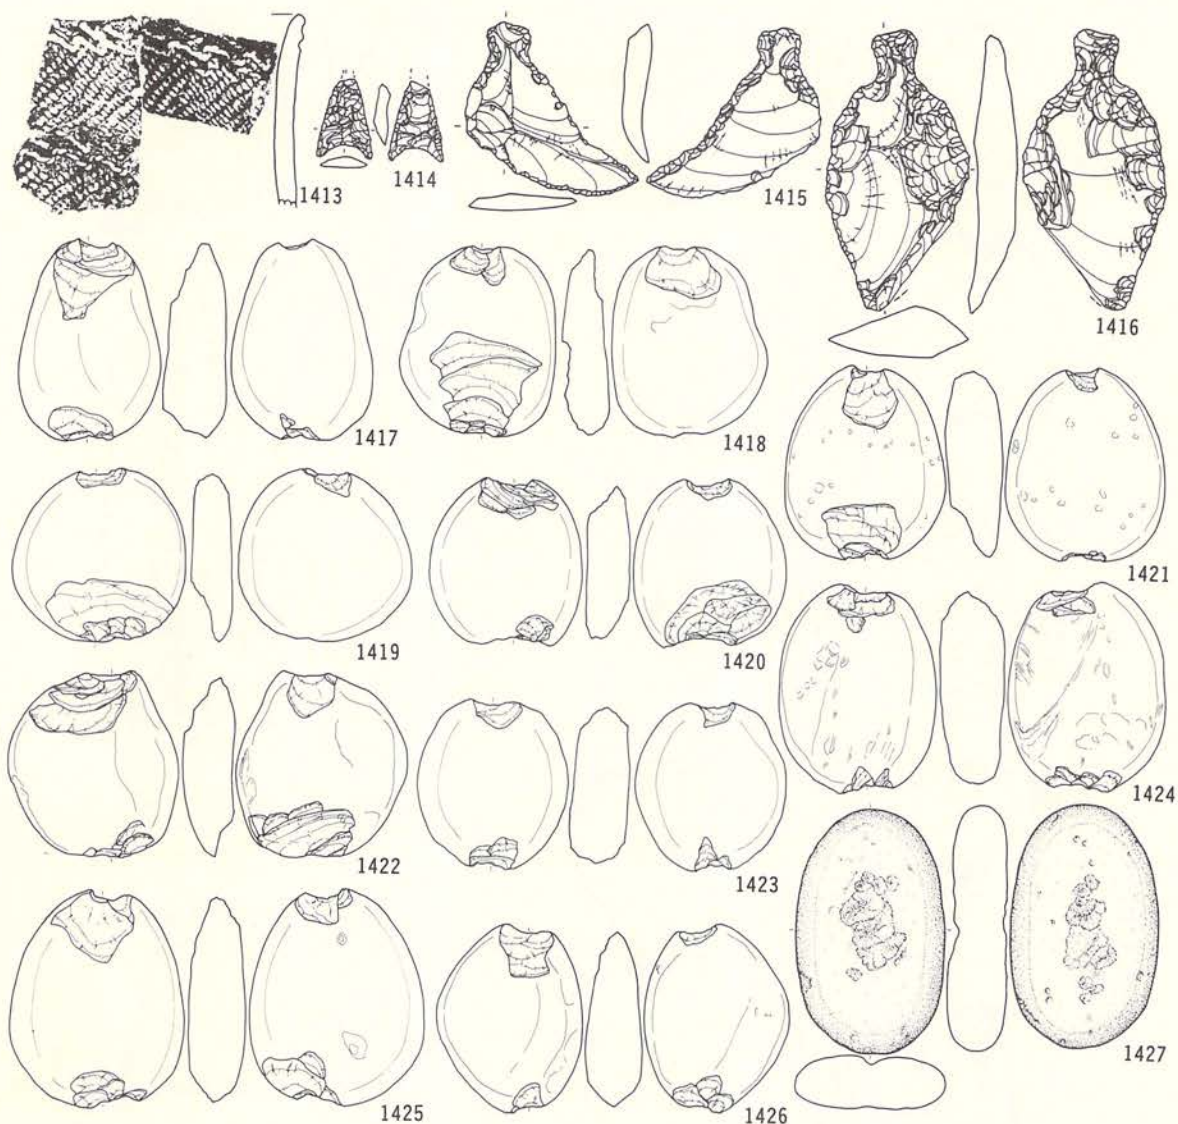 1413
1414
1415
1416
1417
1418
1419
1420
1421
1422
1423
1424
1425
1426
1427